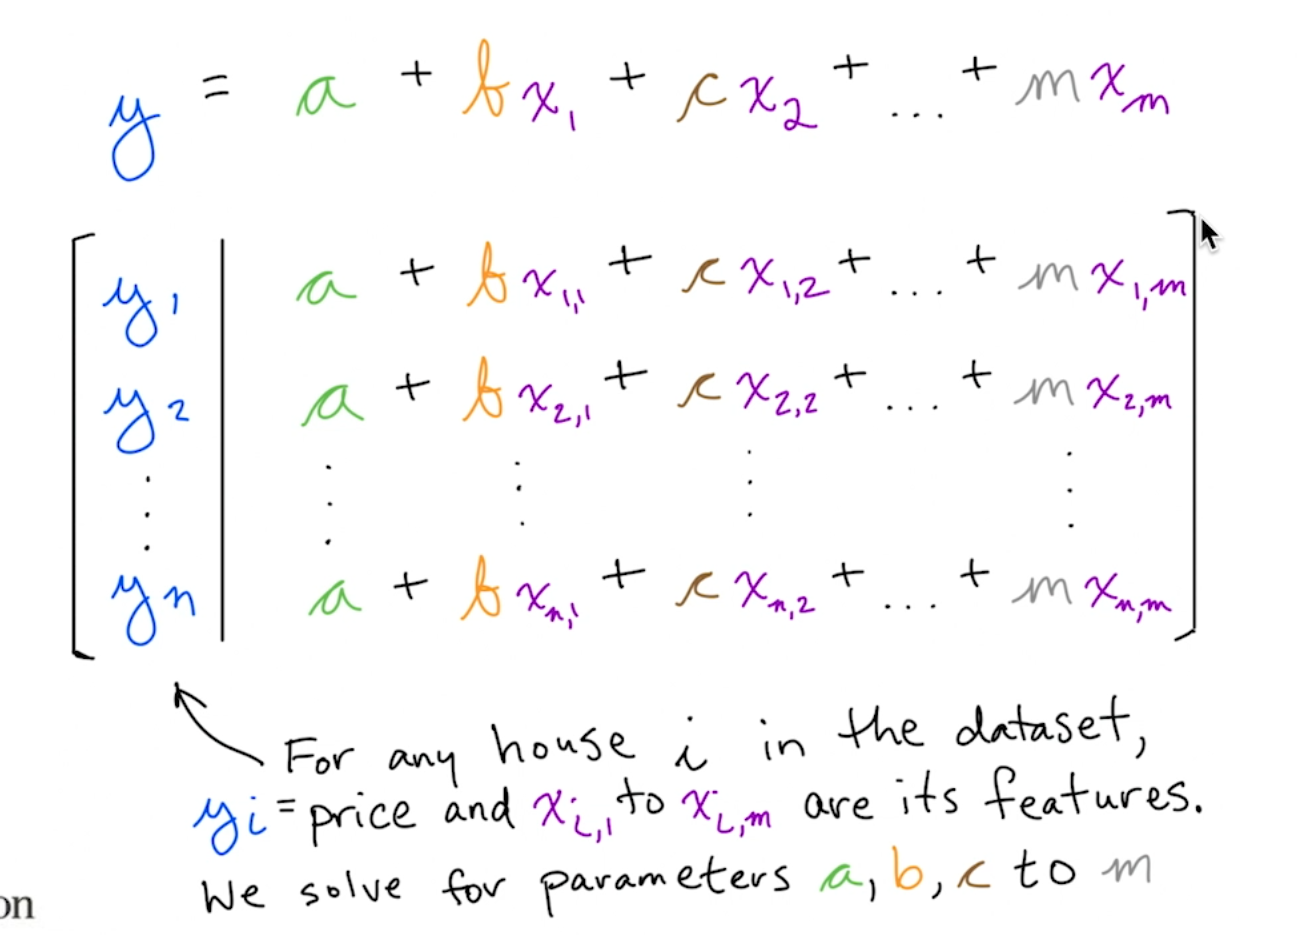 y = a + b x₁ + c x₂ + ... + m xₘ
y₁ | a + b x₁,₁ + c x₁,₂ + ... + m x₁,ₘ
y₂ | a + b x₂,₁ + c x₂,₂ + ... + m x₂,ₘ
⋮ ⋮ ⋮ ⋮ ⋮
yₙ | a + b xₙ,₁ + c xₙ,₂ + ... + m xₙ,ₘ
For any house i in the dataset,
yi = price and xᵢ,₁ to xᵢ,ₘ are its features.
We solve for parameters a, b, c to m
on